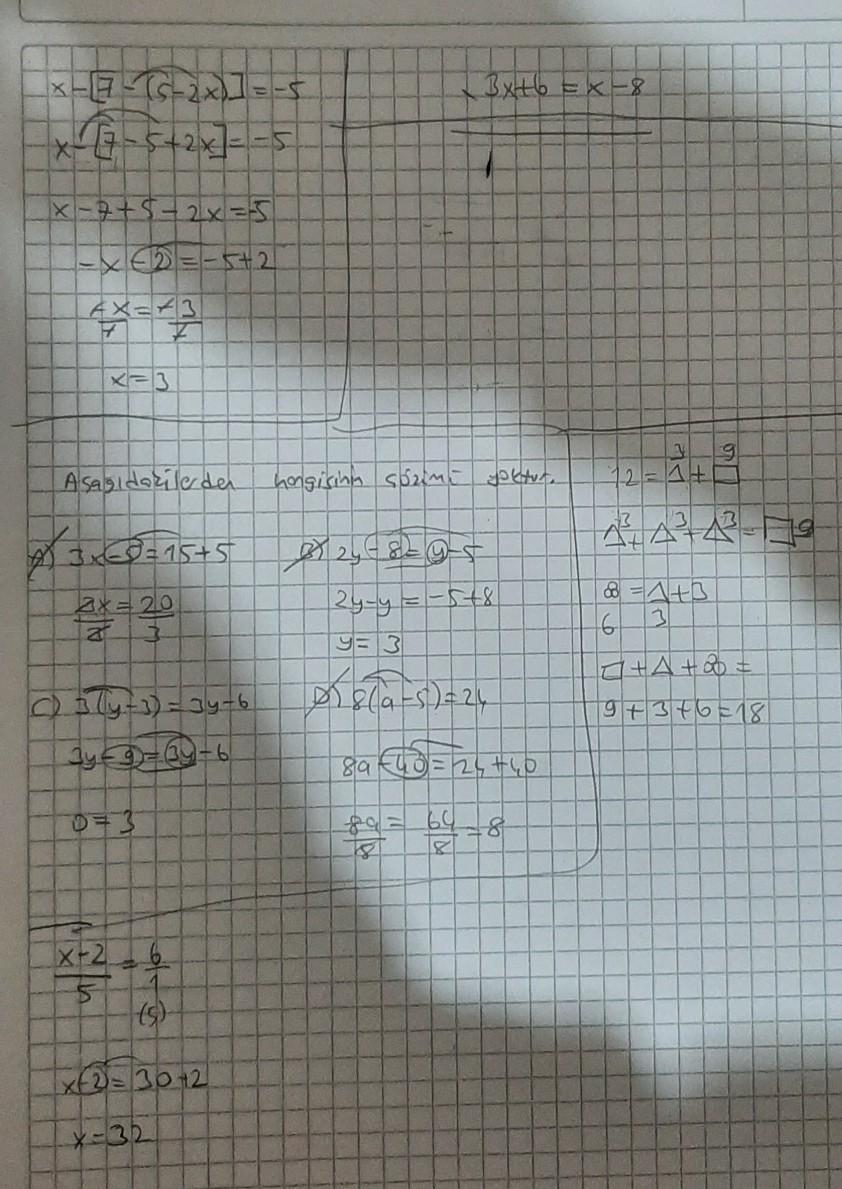 x-[7-(5-2x)]=-5
x-[7-5+2x]=-5
x-7+5-2x=-5
-x-2=-5+2
-x/7=-3/7
x=3
3x+6=x-8
Aşağıdakilerden hangisinin çözümü yoktur.
A) 3x-5=15+5
3x/3=20/3
B) 2y-8=y-5
2y-y=-5+8
y=3
C) 3(y-3)=3y-6
3y-9=3y-6
0=3
D) 8(a-5)=24
8a-40=24+40
8a/8=64/8=8
3 9
12=Δ+□
Δ³+Δ³+Δ³=□9
∞=Δ+3
6 3
□+Δ+∞=
9+3+6=18
x-2/5=6/1
(5)
x-2=30+2
x=32